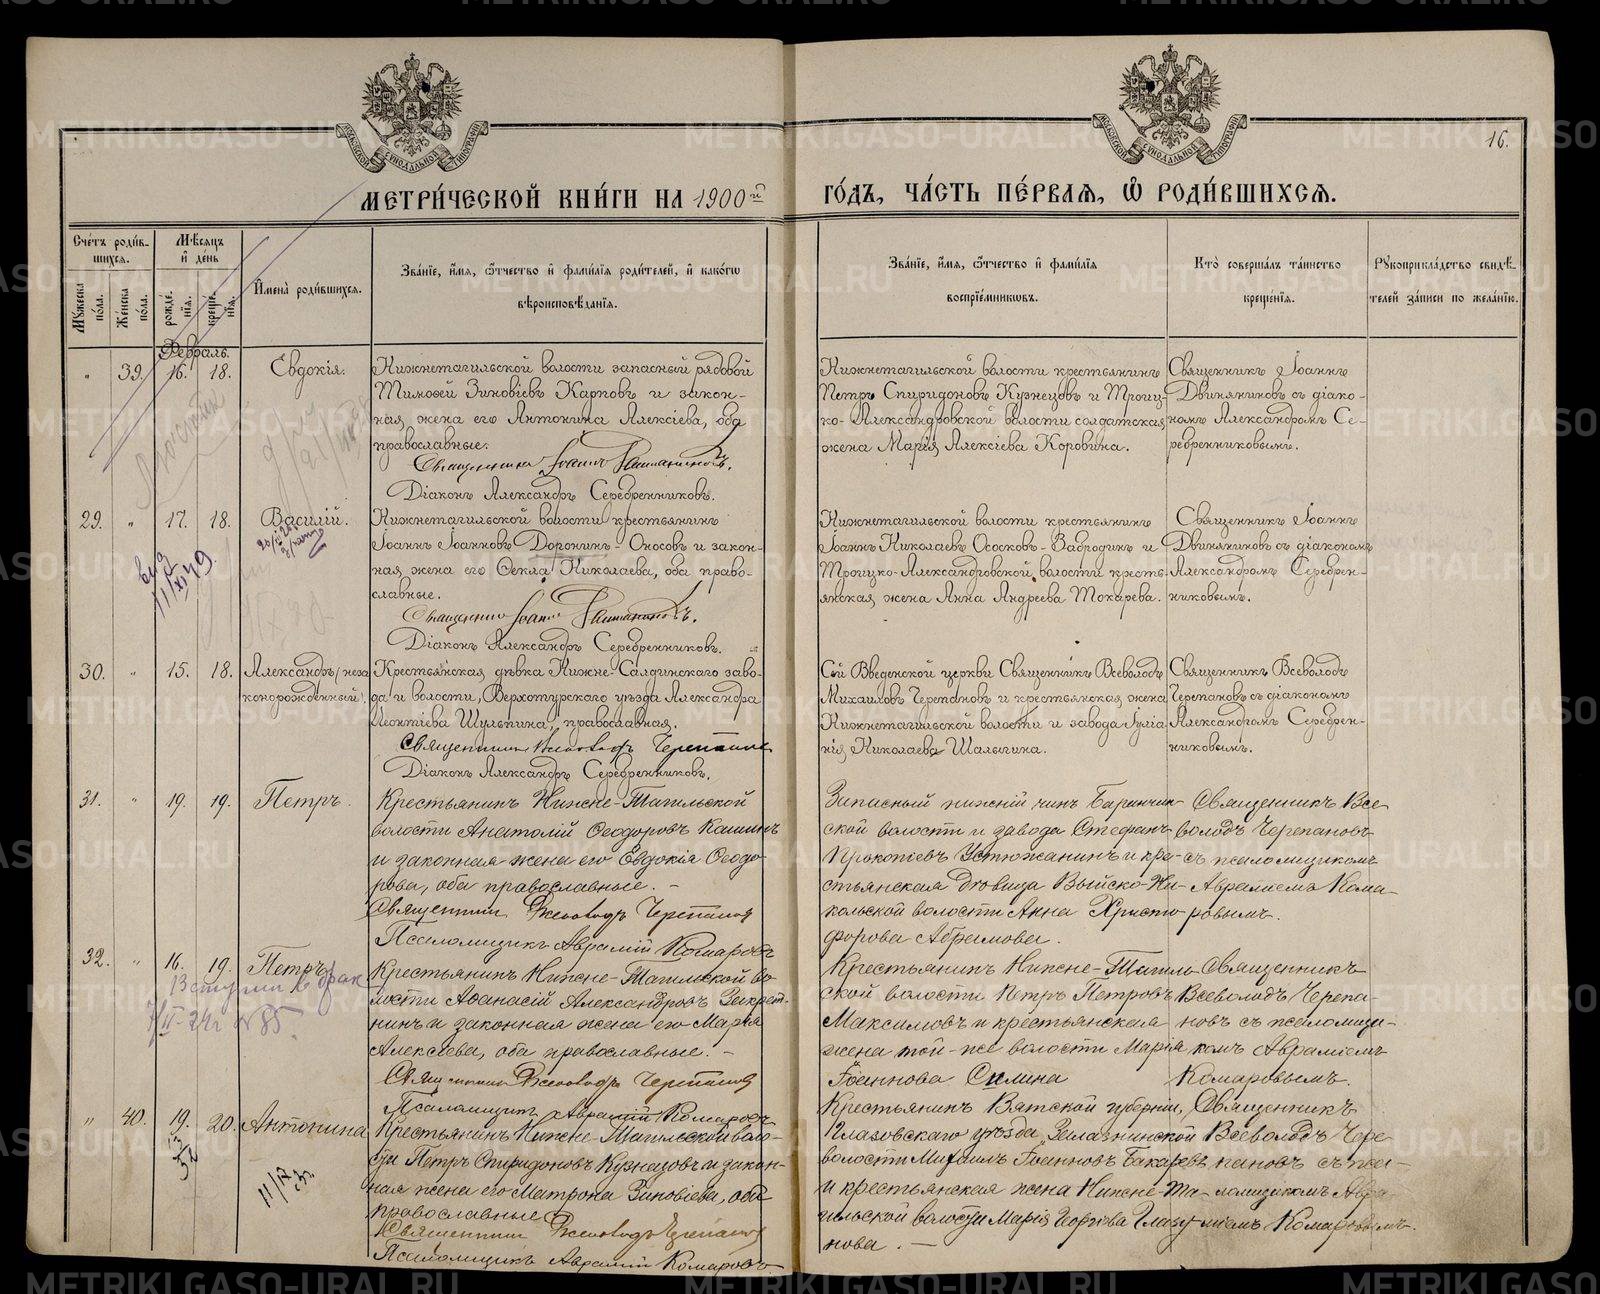 METRIKI.GASO-URAL.RU
16.
МЕТРИ́ЧЕСКОЙ КНИ́ГИ НА 1900й ГО́ДЪ, ЧА́СТЬ ПЕ́РВАѦ, Ѿ РОДИ́ВШИХСѦ.
Сче́тъ роди́в-
шихсѧ.
Мꙋ́жеска по́ла.
Же́нска по́ла.
Мѣ́сѧцъ
и҆ де́нь
рожде-
нїѧ.
креще-
нїѧ.
И҆мена̀ роди́вшихсѧ.
Зва́нїе, и҆́мѧ, ѻ҆́тчество и҆ фами́лїѧ роди́телей, и҆ како́гѡ
вѣроисповѣ́данїѧ.
Зва́нїе, и҆́мѧ, ѻ҆́тчество и҆ фами́лїѧ
воспрїе́мникѡвъ.
Кто̀ соверша́лъ та́инство
креще́нїѧ.
Рꙋкоприкла́дство свидѣ́-
телей за́писи по жела́нїю.
Февраль.
„ 39. 16. 18. Евдокія.
Нижнетагильской волости запасный рядовой
Тимоѳей Зиновіевъ Карповъ и закон-
ная жена его Антонина Алексіева, оба
православные.
Священникъ Іоаннъ
Діаконъ Александръ Серебренниковъ.
Нижнетагильской волости крестьянинъ
Петръ Спиридоновъ Кузнецовъ и Троиц-
ко-Александровской волости солдатская
жена Марія Алексіева Коровина.
Священникъ Іоаннъ
Двиняниновъ съ діако-
номъ Александромъ Се-
ребренниковымъ.
29. „ 17. 18. Василій.
Нижнетагильской волости крестьянинъ
Іоаннъ Іоанновъ Доронинъ-Оносовъ и закон-
ная жена его Ѳекла Николаева, оба право-
славные.
Священникъ Іоаннъ
Діаконъ Александръ Серебренниковъ.
Нижнетагильской волости крестьянинъ
Іоаннъ Николаевъ Ососковъ-Забродинъ и
Троицко-Александровской волости кресть-
янская жена Анна Андреева Токарева.
Священникъ Іоаннъ
Двиняниновъ съ діакономъ
Александромъ Серебрен-
никовымъ.
30. „ 15. 18. Александръ (неза-
коннорожденный).
Крестьянская дѣвка Нижне-Салдинскаго заво-
да и волости, Верхотурскаго уѣзда Александра
Леонтіева Шульпина, православная.
Священникъ Всеволодъ Черепановъ
Діаконъ Александръ Серебренниковъ.
Сей Введенской церкви Священникъ Всеволодъ
Михаиловъ Черепановъ и крестьянская жена
Нижнетагильской волости и завода Іуліа-
нія Николаева Шалыгина.
Священникъ Всеволодъ
Черепановъ съ діакономъ
Александромъ Серебрен-
никовымъ.
31. „ 19. 19. Петръ.
Крестьянинъ Нижне-Тагильской
волости Анатолій Ѳеодоровъ Кашинъ
и законная жена его Евдокія Ѳеодо-
рова, оба православные. –
Священникъ Всеволодъ Черепановъ
Псаломщикъ Аврамій Комаровъ
Запасный нижній чинъ Баранчин-
ской волости и завода Стефанъ
Прокопіевъ Устюжанинъ и кре-
стьянская вдовица Выйско-Ни-
кольской волости Анна Христо-
форова Абрамова.
Священникъ Все-
володъ Черепановъ
съ псаломщикомъ
Авраміемъ Кома-
ровымъ.
32. „ 16. 19. Петръ
Вступил в брак
7/II-24г №85.
Крестьянинъ Нижне-Тагильской во-
лости Аѳанасій Александровъ
и законная жена его Марія
Алексіева, оба православные. –
Священникъ Всеволодъ Черепановъ
Псаломщикъ Аврамій Комаровъ
Крестьянинъ Нижне-Тагиль-
ской волости Петръ Петровъ
Максимовъ и крестьянская
жена той-же волости Марія
Іоаннова Силина
Священникъ
Всеволодъ Черепа-
новъ съ псаломщи-
комъ Авраміемъ
Комаровымъ.
„ 40. 19. 20. Антонина
Крестьянинъ Нижне-Тагильской воло-
сти Петръ Спиридоновъ Кузнецовъ и закон-
ная жена его Матрона Зиновіева, оба
православные.
Священникъ Всеволодъ Черепановъ
Псаломщикъ Аврамій Комаровъ
Крестьянинъ Вятской губерніи,
Глазовскаго уѣзда,
волости Михаилъ Іоанновъ Бакаревъ
и крестьянская жена Нижне-Та-
гильской волости Марія Георгіева Глазу-
нова. –
Священникъ
Всеволодъ Чере-
пановъ съ пса-
ломщикомъ Авра-
міемъ Комаровымъ.